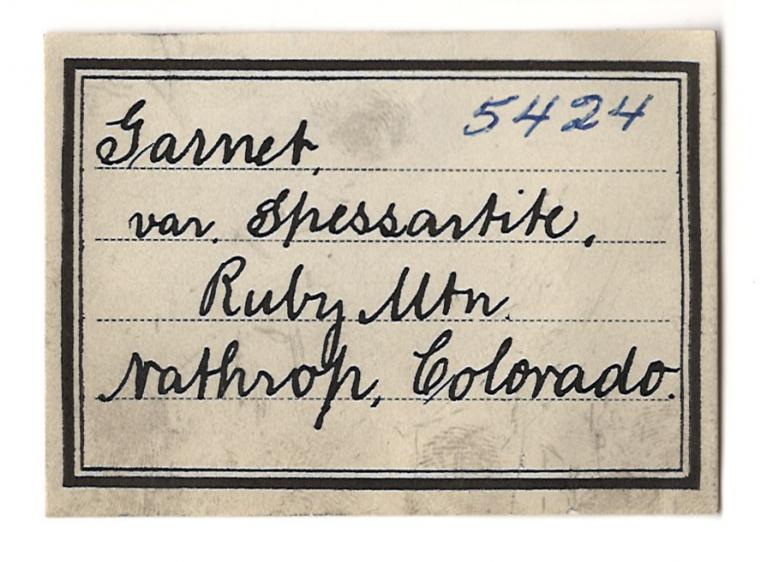 5424
Garnet,
var. Spessartite,
Ruby Mtn.
Nathrop, Colorado.